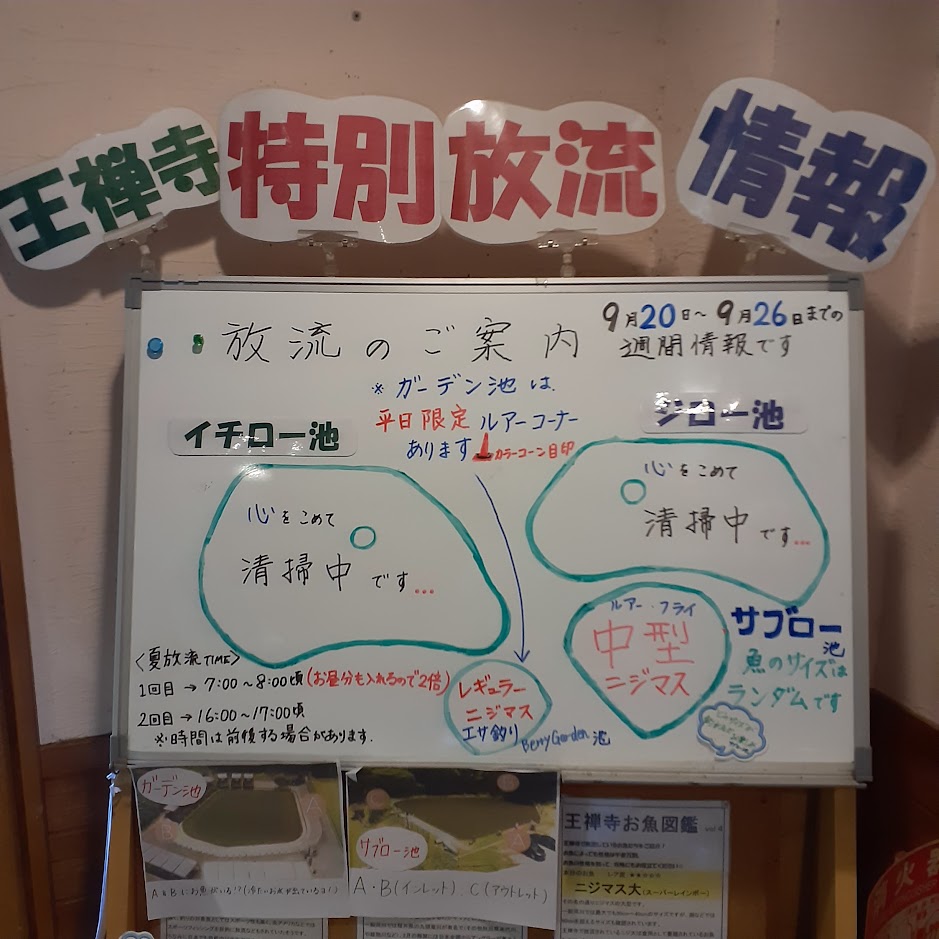 王禅寺 特別 放流 情報
放流のご案内
9月20日～9月26日までの
週間情報です
※ガーデン池は、
平日限定 ルアーコーナー
あります カラーコーン目印
イチロー池
心をこめて
清掃中です...
ジロー池
心をこめて
清掃中です...
ルアー・フライ
中型
ニジマス
サブロー池
魚のサイズは
ランダムです
<夏放流TIME>
1回目→7:00～8:00頃(お昼分も入れるので2倍)
2回目→16:00～17:00頃
※時間は前後する場合があります.
レギュラー
ニジマス
エサ釣り
Berry Garden 池
ガーデン池
A
B
サブロー池
C
A
A・B(インレット)、C(アウトレット)
王禅寺お魚図鑑 vol.4
ニジマス大(スーパーレインボー)
火